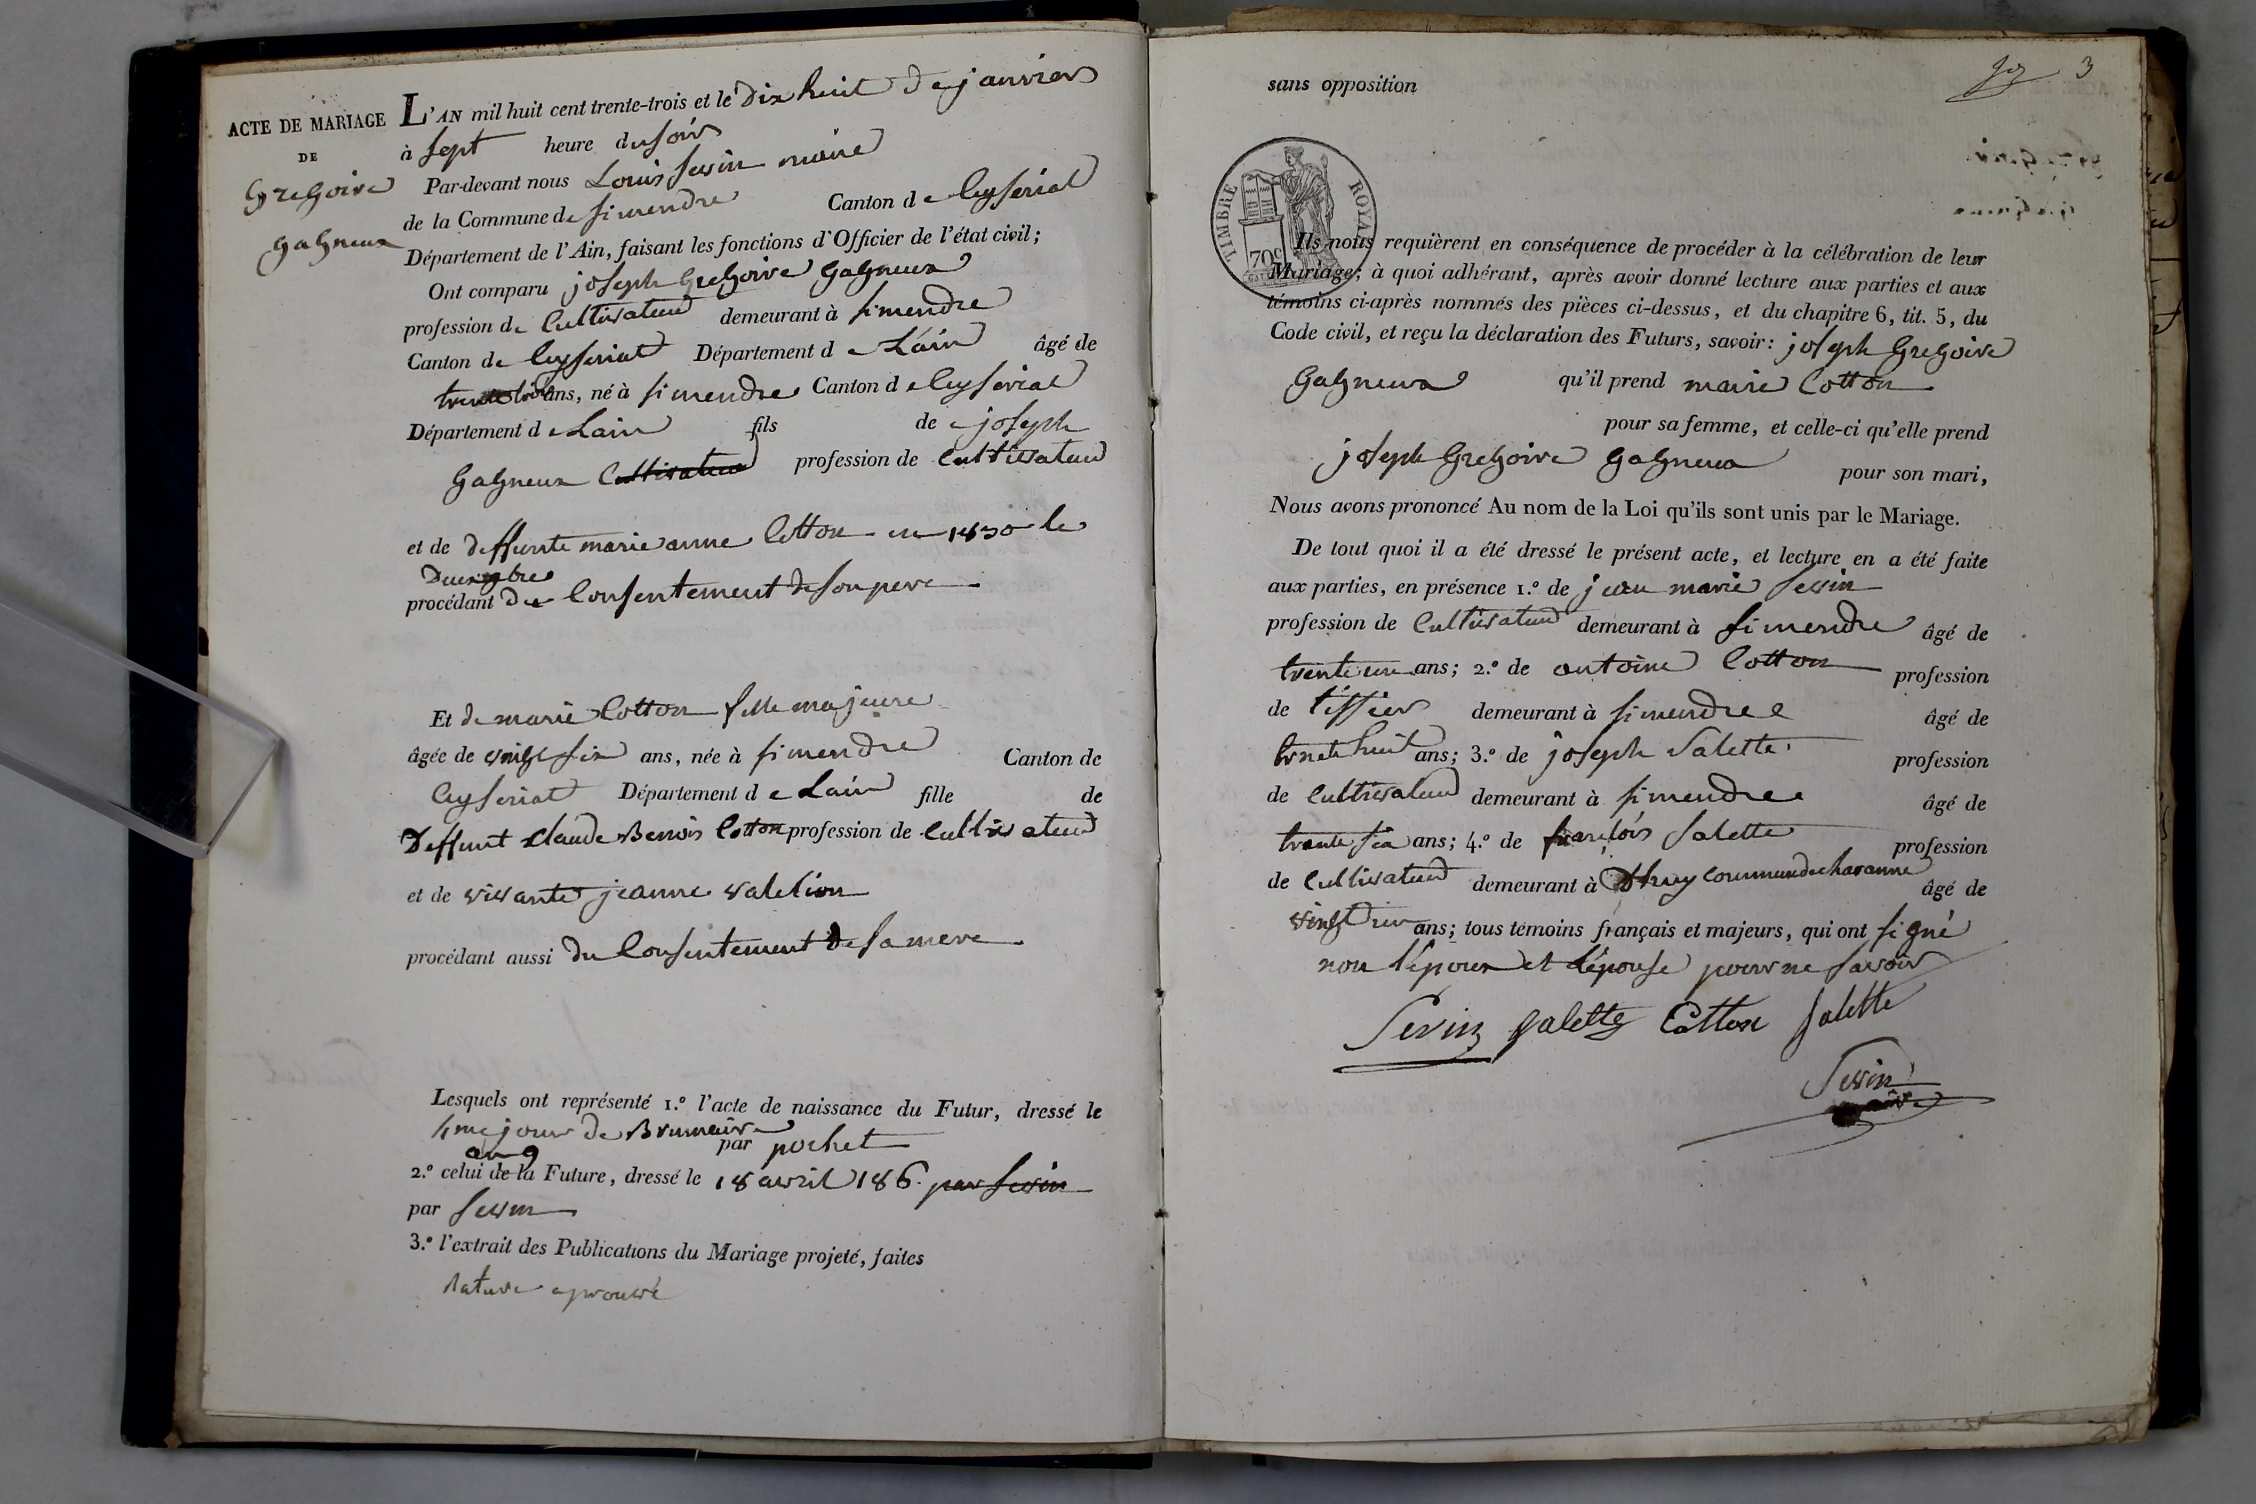 ACTE DE MARIAGE
DE
Gregoire
gagneux
L'AN mil huit cent trente-trois et le Dix huit De janvier
à sept heure du soir
Par-devant nous Louis sevin maire
de la Commune de simendre Canton de Ceyseriat
Département de l'Ain, faisant les fonctions d'Officier de l'état civil;
Ont comparu joseph Gregoire Gagneux
profession de Cultivateur demeurant à simendre
Canton de Ceyseriat Département de Lain âgé de
ans, né à simendre Canton de Ceyseriat
Département de Lain fils de joseph
gagneux Cultivateur profession de Cultivateur
et de deffunte marie anne Cotton en 1830 le
Decembre
procédant du Consentement de son pere
Et de marie Cotton fille majeure
âgée de vingt six ans, née à simendre Canton de
Ceyseriat Département de Lain fille de
Deffunt claude Benois Cotton profession de Cultivateur
et de vivante jeanne valelion
procédant aussi du Consentement de sa mere
Lesquels ont représenté 1.º l'acte de naissance du Futur, dressé le
4me jour de Brumaire par pochet
an 9
2.º celui de la Future, dressé le 18 avril 186. par sevin
par sevin
3.º l'extrait des Publications du Mariage projeté, faites
Rature aprouvé
3
sans opposition
TIMBRE ROYAL
70c
Ils nous requièrent en conséquence de procéder à la célébration de leur
Mariage; à quoi adhérant, après avoir donné lecture aux parties et aux
témoins ci-après nommés des pièces ci-dessus, et du chapitre 6, tit. 5, du
Code civil, et reçu la déclaration des Futurs, savoir: joseph Gregoire
Gagneux qu'il prend marie Cotton
pour sa femme, et celle-ci qu'elle prend
joseph Gregoire Gagneux pour son mari,
Nous avons prononcé Au nom de la Loi qu'ils sont unis par le Mariage.
De tout quoi il a été dressé le présent acte, et lecture en a été faite
aux parties, en présence 1.º de jean marie sevin
profession de Cultivateur demeurant à simendre âgé de
trente un ans; 2.º de antoine Cotton profession
de tissier demeurant à simendre âgé de
trnete huit ans; 3.º de joseph Salette profession
de Cultivateur demeurant à simendre âgé de
trante six ans; 4.º de francois salette profession
de Cultivateur demeurant à Dhuy commune de chavanne âgé de
vingt ans; tous témoins français et majeurs, qui ont signé
non l'epoux et l'épouse pour ne savoir
Sevin Salette Cotton Salette
Sevin
maire